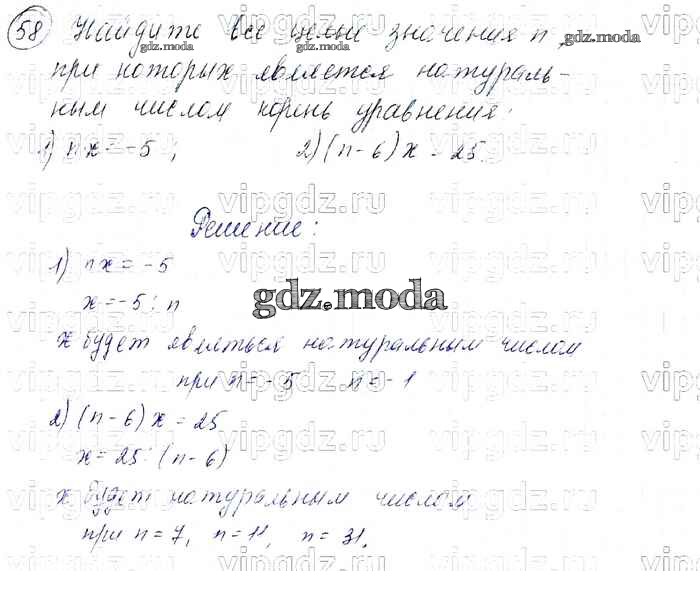 58 Найдите все целые значения n,
при которых является натураль-
ным числом корень уравнения:
1) nx = -5; 2) (n-6)x = 25.
Решение:
1) nx = -5
x = -5 : n
gdz.moda
x будет являться натуральным числом
при n = -5 n = -1
2) (n-6)x = 25
x = 25 : (n-6)
x будет натуральным числом
при n = 7, n = 11, n = 31.